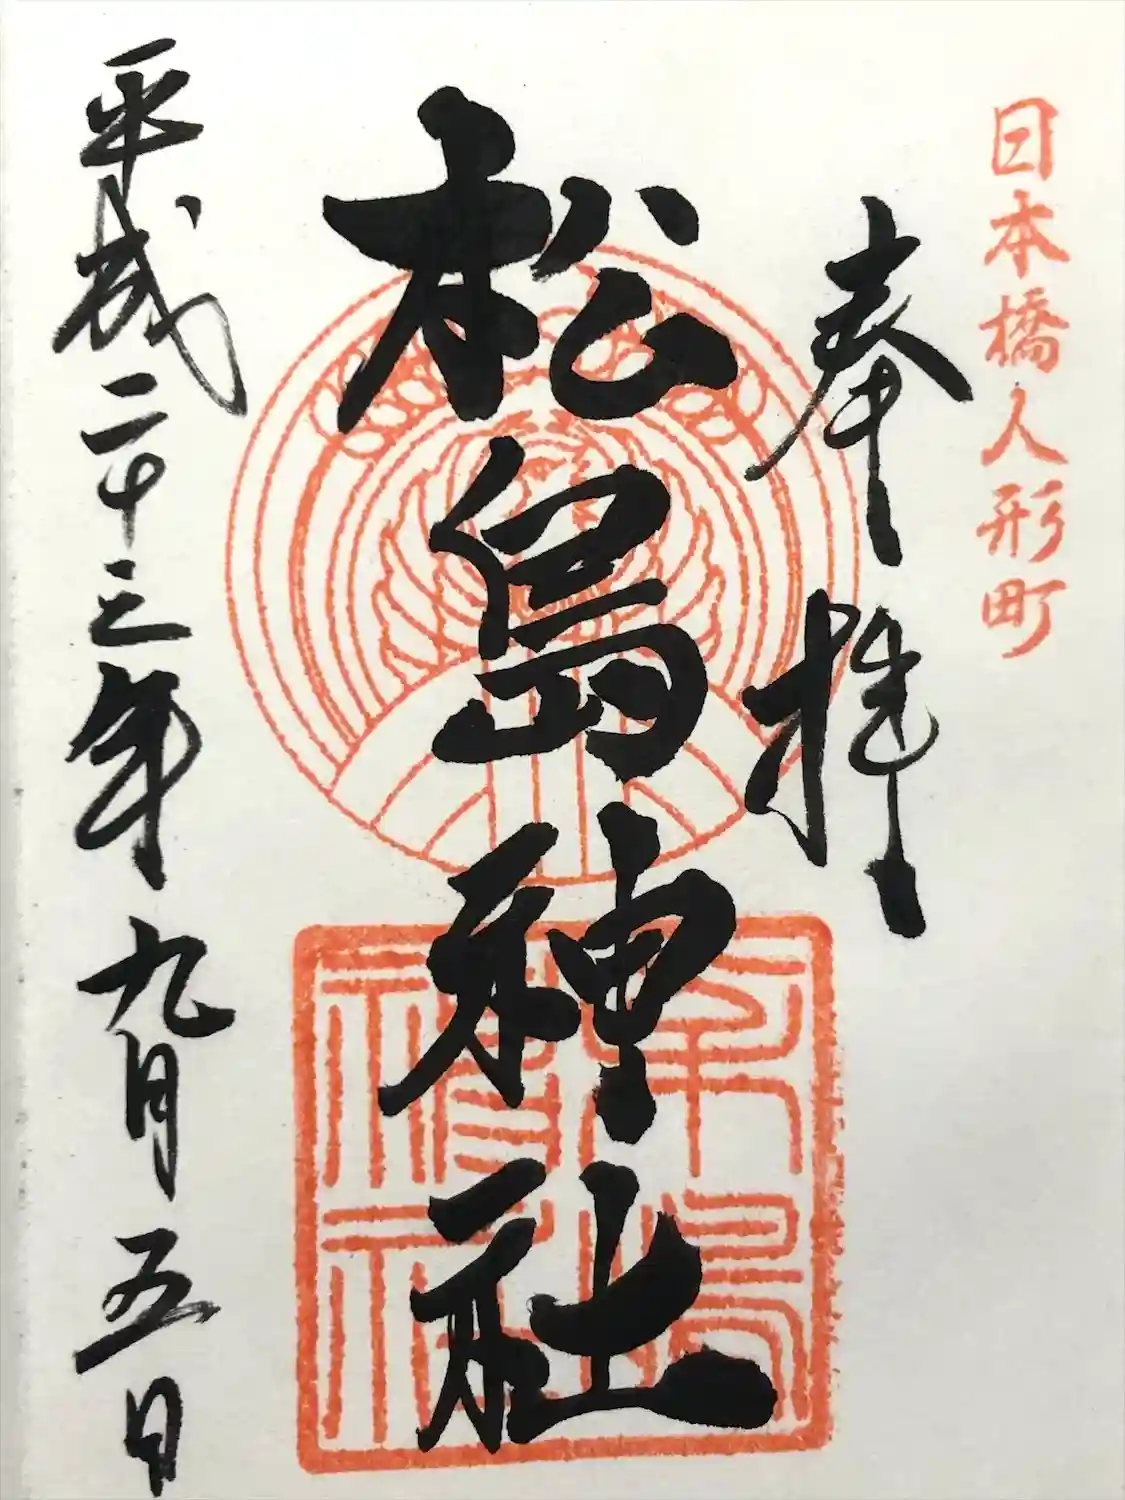 日本橋人形町
奉拝
松島神社
平成二十三年九月五日